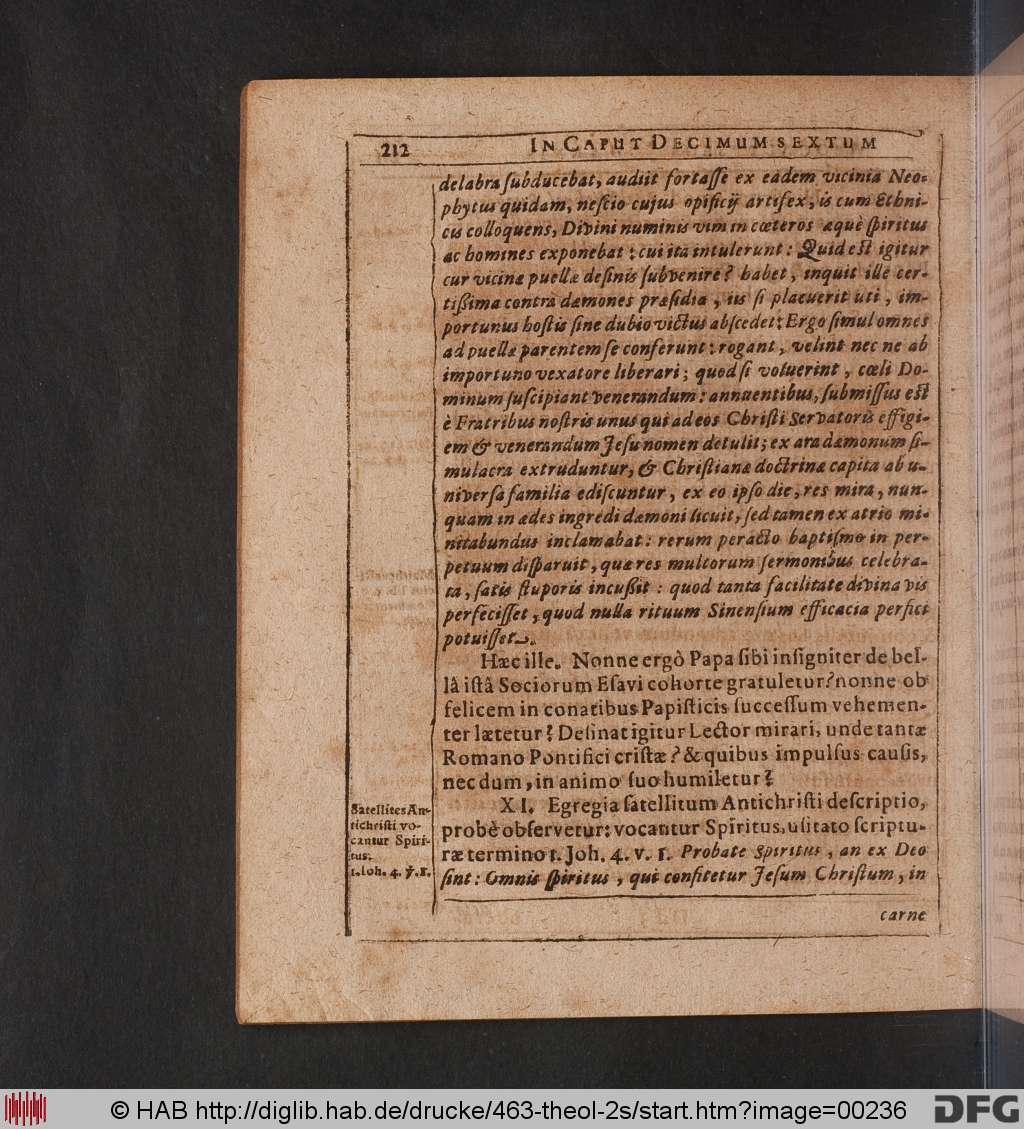 212 IN CAPUT DECIMUM SEXTUM
delabra ſubducebat, audiit fortaſſe ex eadem vicinia Neo-
phytus quidam, neſcio cujus opificij artifex, is cum Ethni-
cis colloquens, Divini numinis vim in cœteros æquè ſpiritus
ac homines exponebat : cui ita intulerunt : Quid eſt igitur
cur vicinæ puellæ deſinis ſubvenire? habet, inquit ille cer-
tißima contra dæmones præſidia, iis ſi placuerit uti, im-
portunus hoſtis ſine dubio victus abſcedet: Ergo ſimul omnes
ad puellæ parentem ſe conferunt: rogant, velint nec ne ab
importuno vexatore liberari; quod ſi voluerint, cœli Do-
minum ſuſcipiant venerandum: annuentibus, ſubmiſſus eſt
è Fratribus noſtris unus qui ad eos Chriſti Servatoris effigi-
em & venerandum Jeſu nomen detulit; ex ara dæmonum ſi-
mulacra extruduntur, & Chriſtianæ doctrinæ capita ab u-
niverſa familia ediſcuntur, ex eo ipſo die, res mira, nun-
quam in ædes ingredi dæmoni licuit, ſed tamen ex atrio mi-
nitabundus inclamabat: rerum peracto baptiſmo in per-
petuum diſparuit, quæ res multorum ſermonibus celebra-
ta, ſatis ſtuporis incußit : quod tanta facilitate divina vis
perfeciſſet, quod nulla rituum Sinenſium efficacia perfici
potuiſſet.
Hæc ille. Nonne ergò Papa ſibi inſigniter de bel-
lâ iſtâ Sociorum Eſavi cohorte gratuletur? nonne ob
felicem in conatibus Papiſticis ſucceſſum vehemen-
ter lætetur? Deſinat igitur Lector mirari, unde tantæ
Romano Pontifici criſtæ? & quibus impulſus cauſis,
nec dum, in animo ſuo humiletur?
XI. Egregia ſatellitum Antichriſti deſcriptio,
probè obſervetur: vocantur Spiritus, uſitato ſcriptu-
ræ termino 1. Joh. 4. v. 1. Probate Spiritus, an ex Deo
ſint: Omnis ſpiritus, qui confitetur Jeſum Chriſtum, in
carne
Satellites An-
tichriſti vo-
cantur Spiri-
tus.
1. Ioh. 4. ℣. 1.
© HAB http://diglib.hab.de/drucke/463-theol-2s/start.htm?image=00236
DFG